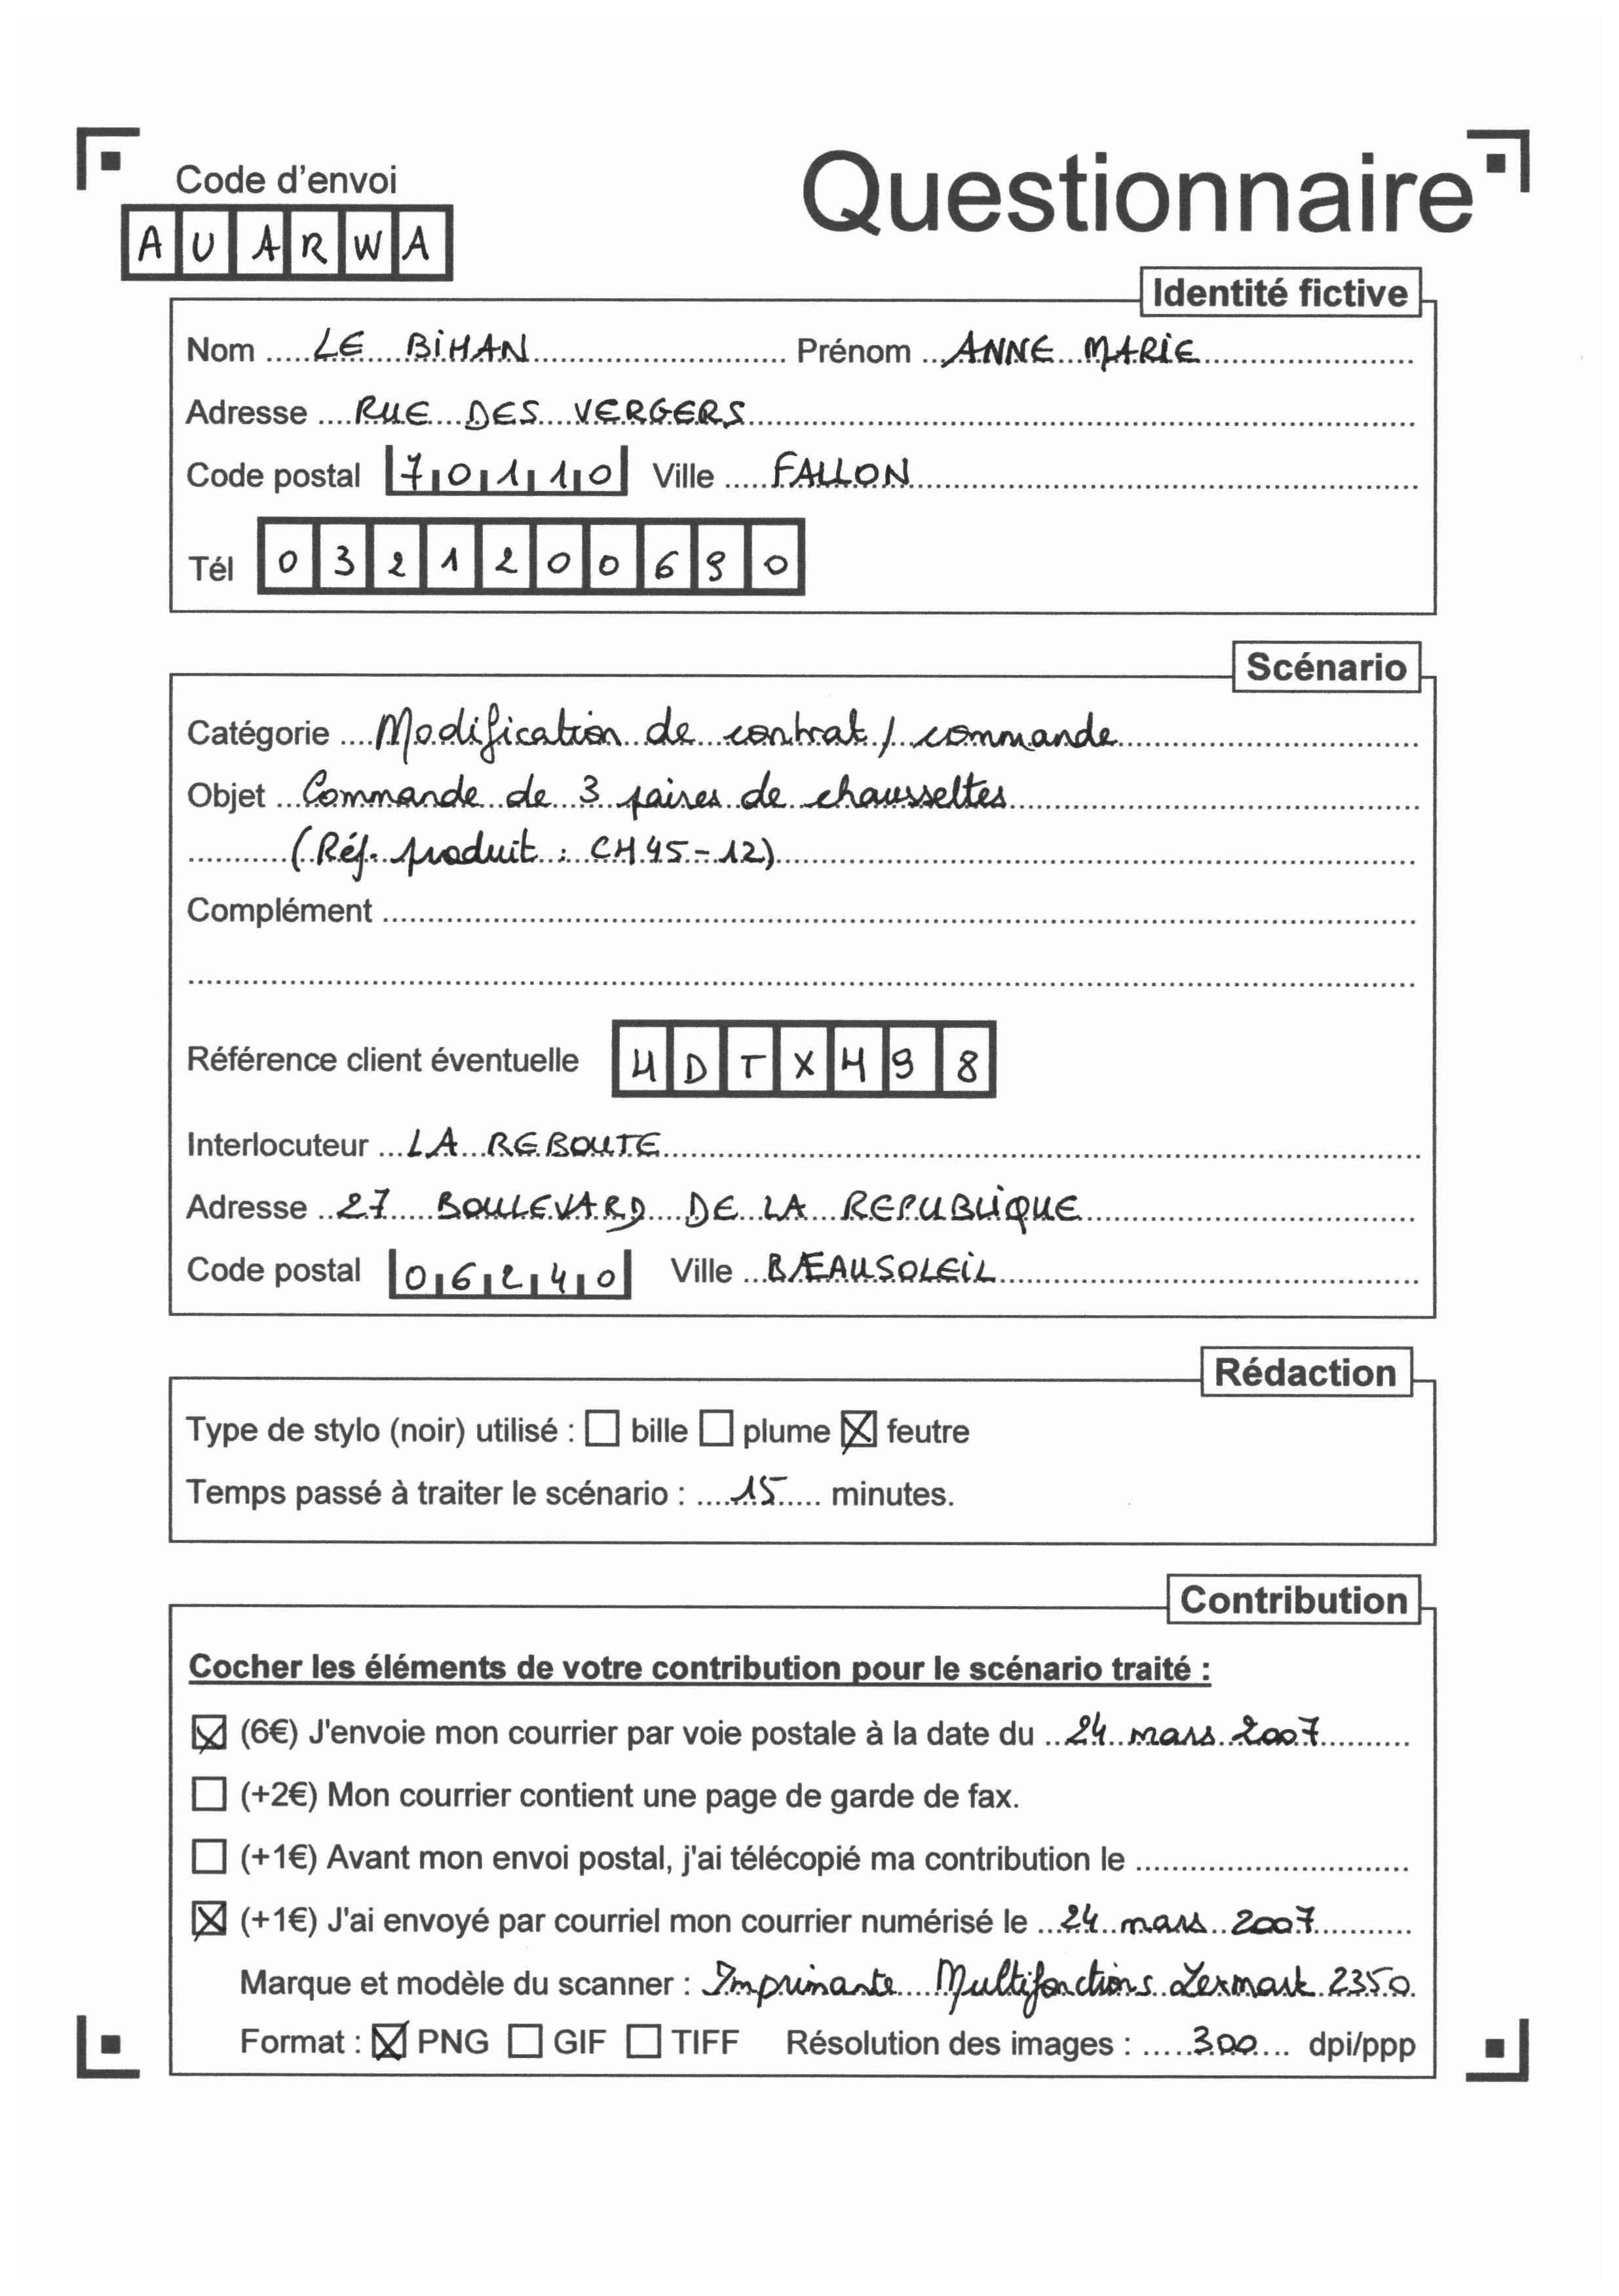 Code d'envoi
Questionnaire
A U A R W A
Identité fictive
Nom LE BIHAN Prénom ANNE MARIE
Adresse RUE DES VERGERS
Code postal 70110 Ville FALLON
Tél 0321200690
Scénario
Catégorie Modification de contrat / commande
Objet Commande de 3 paires de chaussettes
(Réf. produit : CH45-12)
Complément
Référence client éventuelle DTX498
Interlocuteur LA REBOUTE
Adresse 27 BOULEVARD DE LA REPUBLIQUE
Code postal 06240 Ville BEAUSOLEIL
Rédaction
Type de stylo (noir) utilisé : bille plume feutre
Temps passé à traiter le scénario : 15 minutes.
Contribution
Cocher les éléments de votre contribution pour le scénario traité :
(6€) J'envoie mon courrier par voie postale à la date du 24 mars 2007
(+2€) Mon courrier contient une page de garde de fax.
(+1€) Avant mon envoi postal, j'ai télécopié ma contribution le
(+1€) J'ai envoyé par courriel mon courrier numérisé le 24 mars 2007
Marque et modèle du scanner : Imprimante Multifonctions Lexmark 2350
Format : PNG GIF TIFF Résolution des images : 300 dpi/ppp